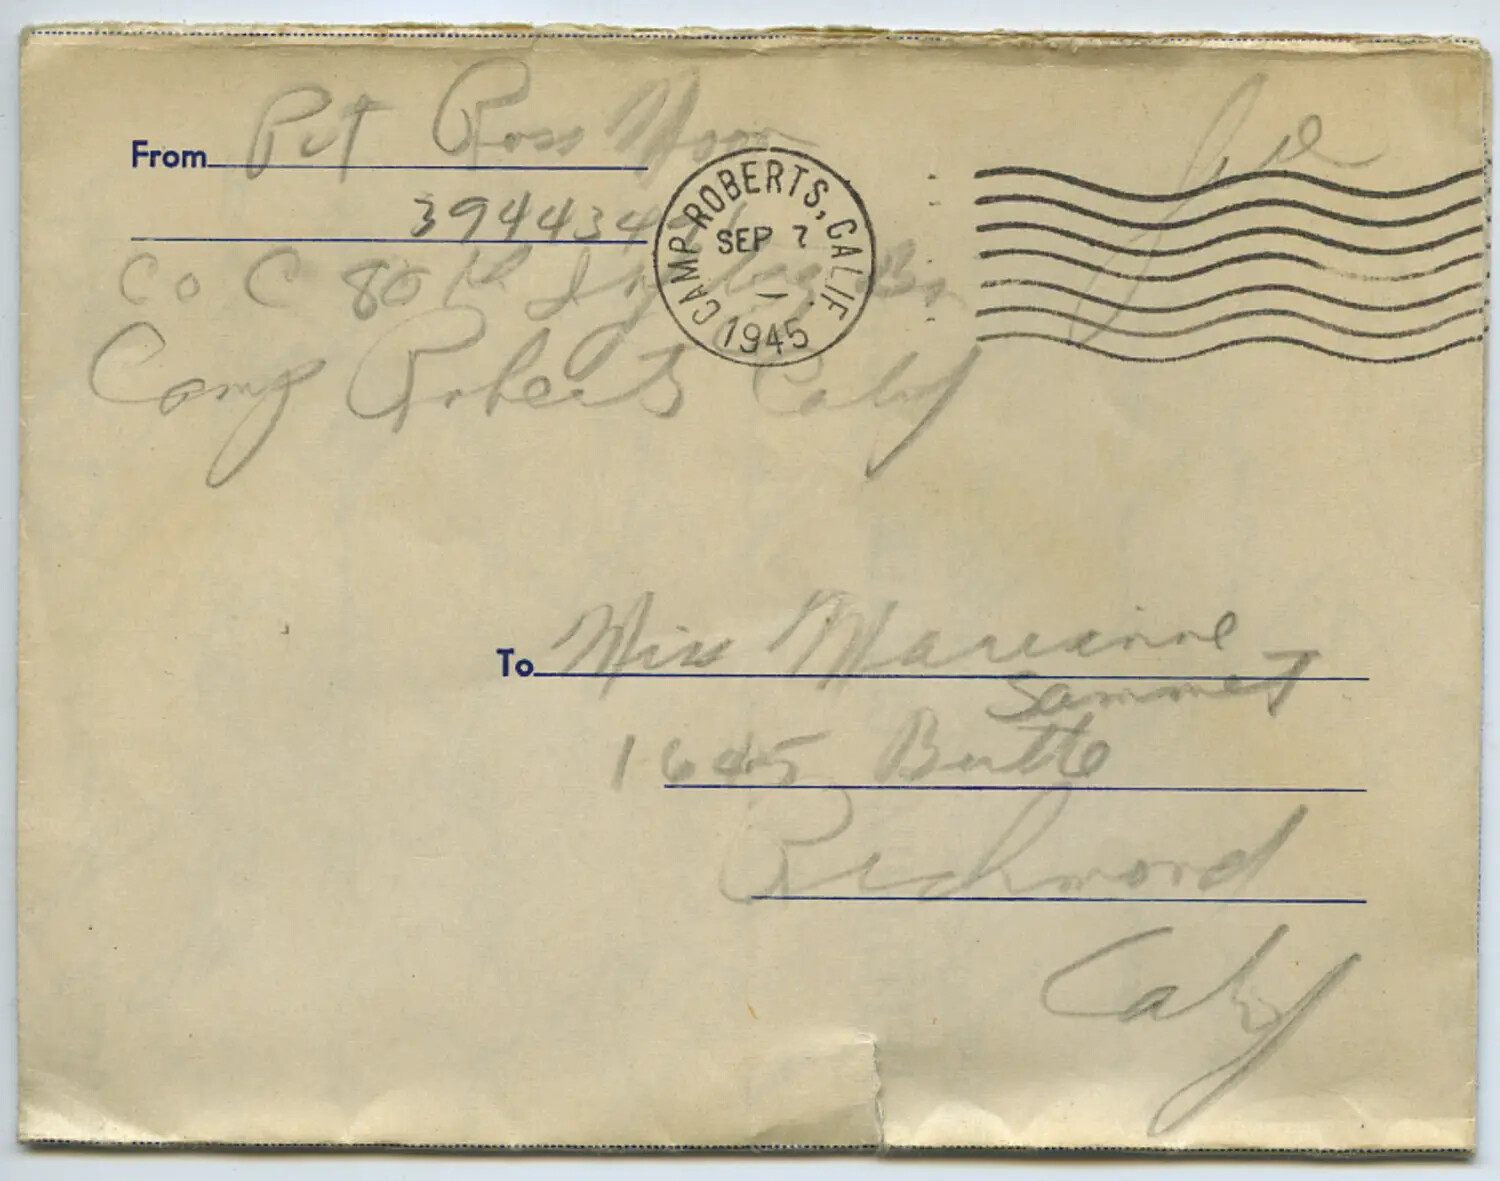 From Pvt Ross Moon
3944434
Co C 80th Inf Trng Bn
Camp Roberts Calif
CAMP ROBERTS, CALIF.
SEP 7
1945
Free
To Miss Marianne
Sammet
1645 Butte
Richmond
Calif